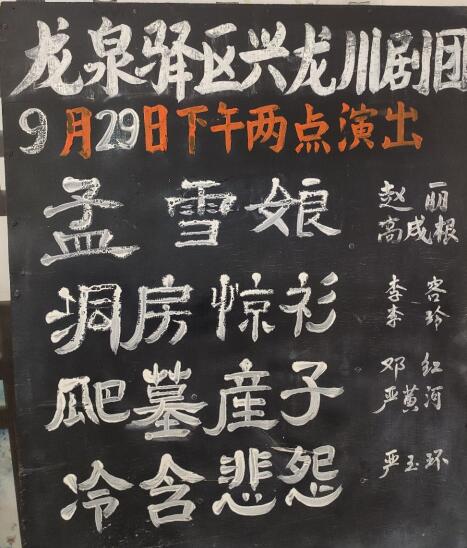 龙泉驿区兴龙川剧团
9月29日下午两点演出
孟雪娘
赵丽
高成根
洞房惊衫
李容
李玲
爬墓産子
邓红
严黄河
冷含悲怨
严玉环